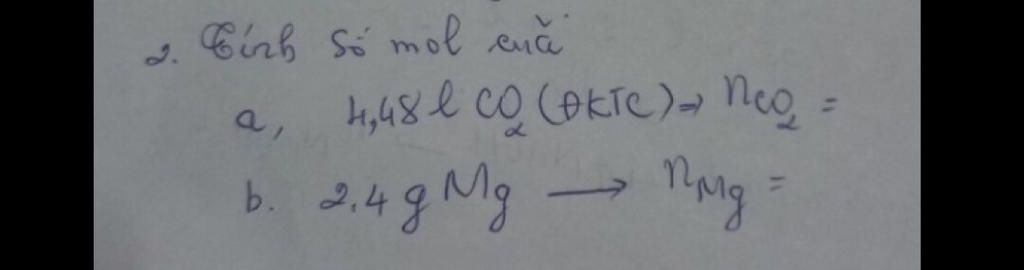 2. Tính số mol củả
a, 4,48 l CO₂ (ĐKTC) → nCO₂ =
b. 2.4 g Mg → nMg =